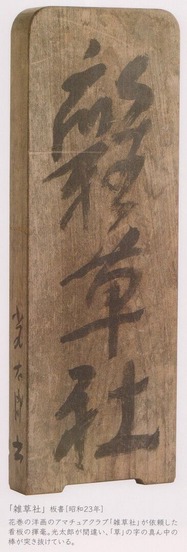 雑草社
「雑草社」 板書[昭和23年]
花巻の洋画のアマチュアクラブ「雑草社」が依頼した
看板の揮毫。光太郎が間違い、「草」の字の真ん中の
棒が突き抜けている。